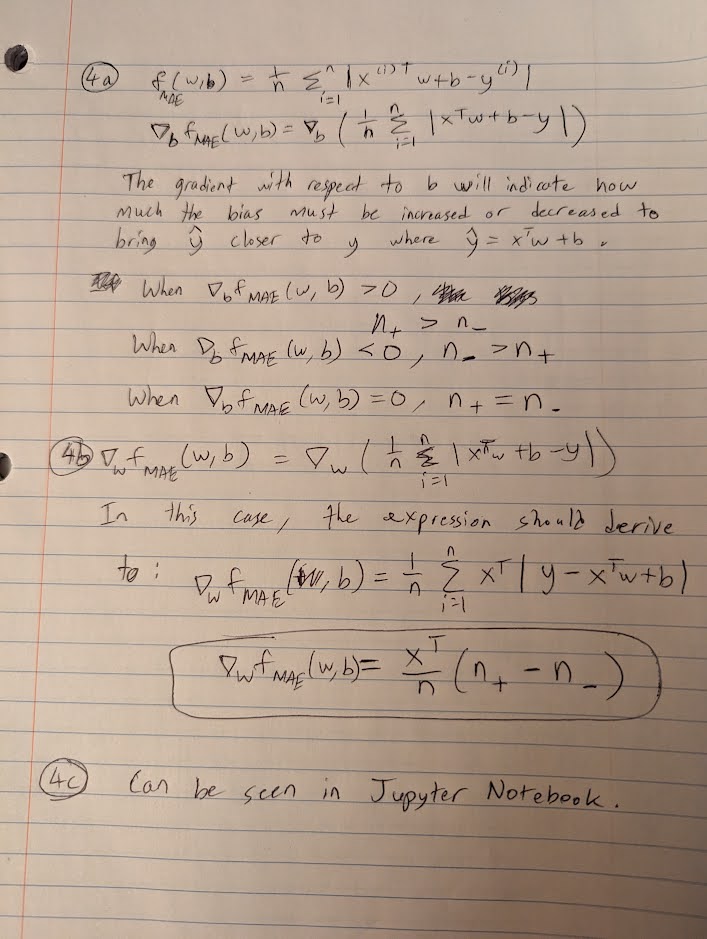 4a f_MAE(w,b) = 1/n Σ_{i=1}^{n} |x^{(i)T} w+b-y^{(i)}|
∇_b f_MAE(w,b) = ∇_b ( 1/n Σ_{i=1}^{n} |x^T w+b-y| )
The gradient with respect to b will indicate how
much the bias must be increased or decreased to
bring ŷ closer to y where ŷ = x^T w + b .
When ∇_b f_MAE(w, b) > 0 ,
n_+ > n_-
When ∇_b f_MAE(w, b) < 0 , n_- > n_+
When ∇_b f_MAE(w, b) = 0, n_+ = n_-
4b ∇_w f_MAE(w,b) = ∇_w ( 1/n Σ_{i=1}^{n} |x^T w + b - y| )
In this case, the expression should derive
to : ∇_w f_MAE(w, b) = 1/n Σ_{i=1}^{n} x^T | y - x^T w + b |
∇_w f_MAE(w,b) = x^T/n (n_+ - n_-)
4c Can be seen in Jupyter Notebook.